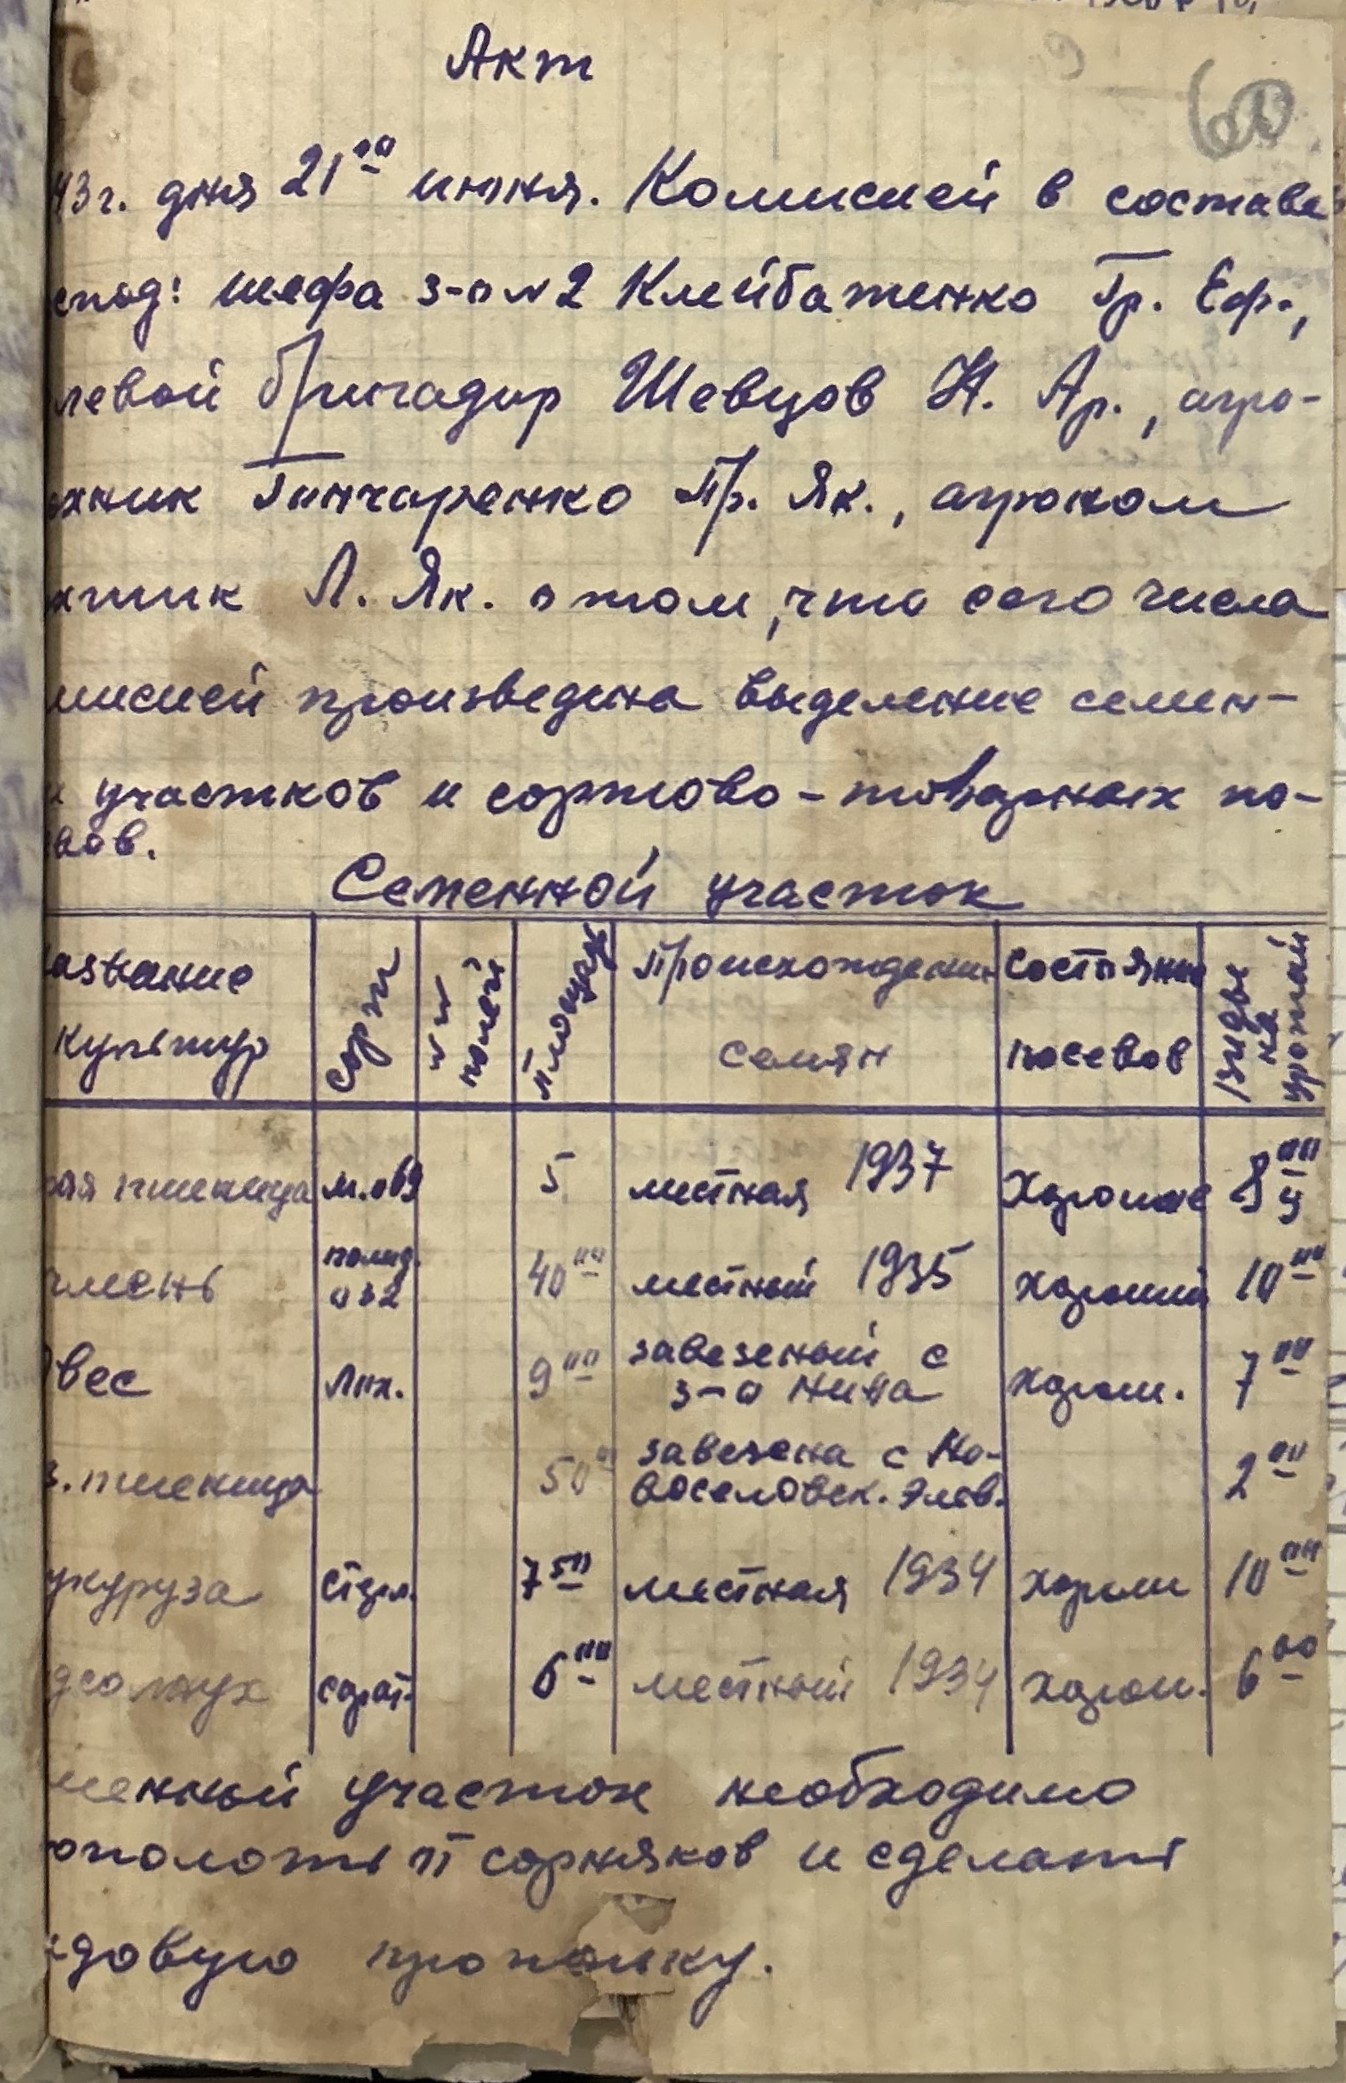 Акт
60
43г. дня 21го июня. Комисией в составе
спод: шефа з-о №2 Клейбатенко Гр. Еф.,
левой бригадир Шевцов Н. Ар., агро-
хник Гончаренко Пр. Як., агроном
Л. Як. о том, что сего числа
мисией произведена выделение семен-
х участков и сортово-товарных по-
вов.
Семенной участок
азвание культур | сорт | №№ полей | площадь | Происхождение семян | состояние посевов | Виды на урожай
ая пшеница | 5 | местная 1937 | хорошие | 8 ц
чмень | 40 00 | местный 1935 | хороший | 10 00
вес | лох. | 9 00 | завезеный с з-о Нива | хорош. | 7 00
з. пшеница | 50 | завезена с Но-воселовск. Элев. | 2 00
укуруза | стерл. | 7 50 | местная 1934 | хорош | 10 00
дсолнух | сарат. | 6 00 | местный 1934 | хорош. | 6 00
менный участок необходимо
ополоть от сорняков и сделать
довую прополку.